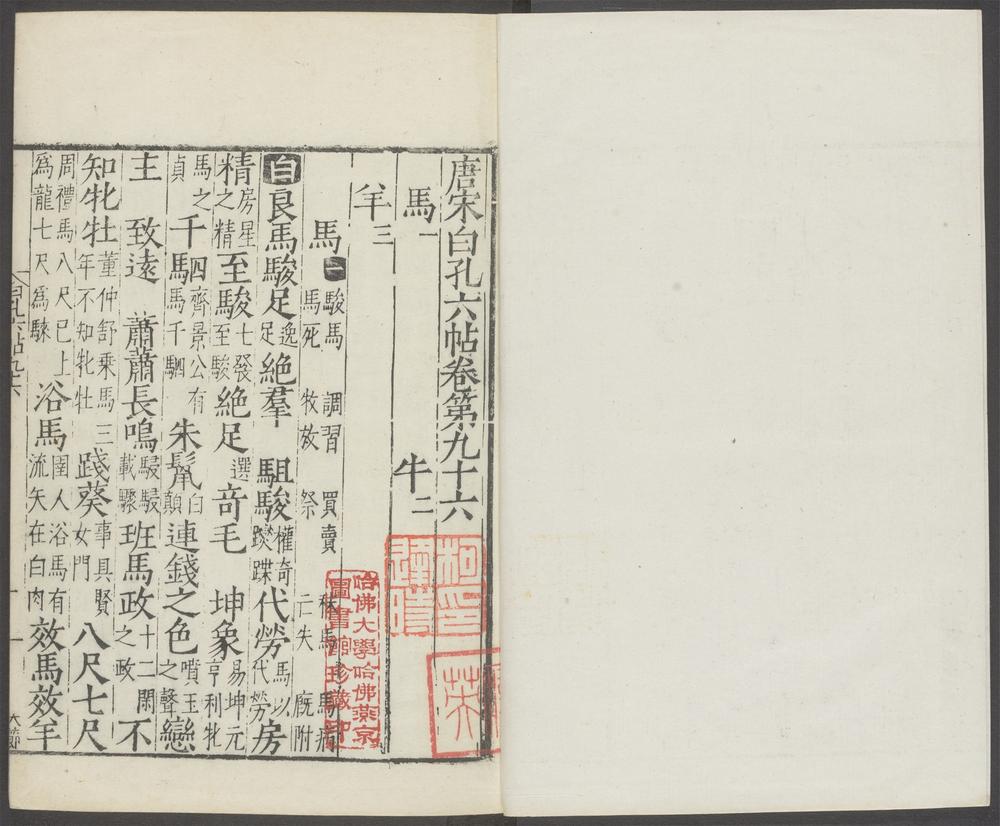 唐宋白孔六帖卷第九十六
馬一 牛二
羊三
馬一 駿馬 調習 買賣 秣馬 馬病 馬死 牧放 祭 亡失 廐附
白良馬駿足逸足絶羣 駔駿權奇代勞馬以代勞房
精房星之精至駿七發至駿絶足選奇毛 坤象易坤元亨利牝
馬之貞千駟齊景公有馬千駟朱鬣白顛連錢之色噴玉之聲戀
主 致遠 蕭蕭長鳴駸駸載驟班馬政十二閑之政不
知牝牡董仲舒乘馬三年不知牝牡踐葵事具賢女門八尺七尺
周禮馬八尺已上爲龍七尺爲騋浴馬圉人浴馬有流矢在白肉效馬效羊
哈佛大學哈佛燕京圖書館珍藏印
柯印逢時